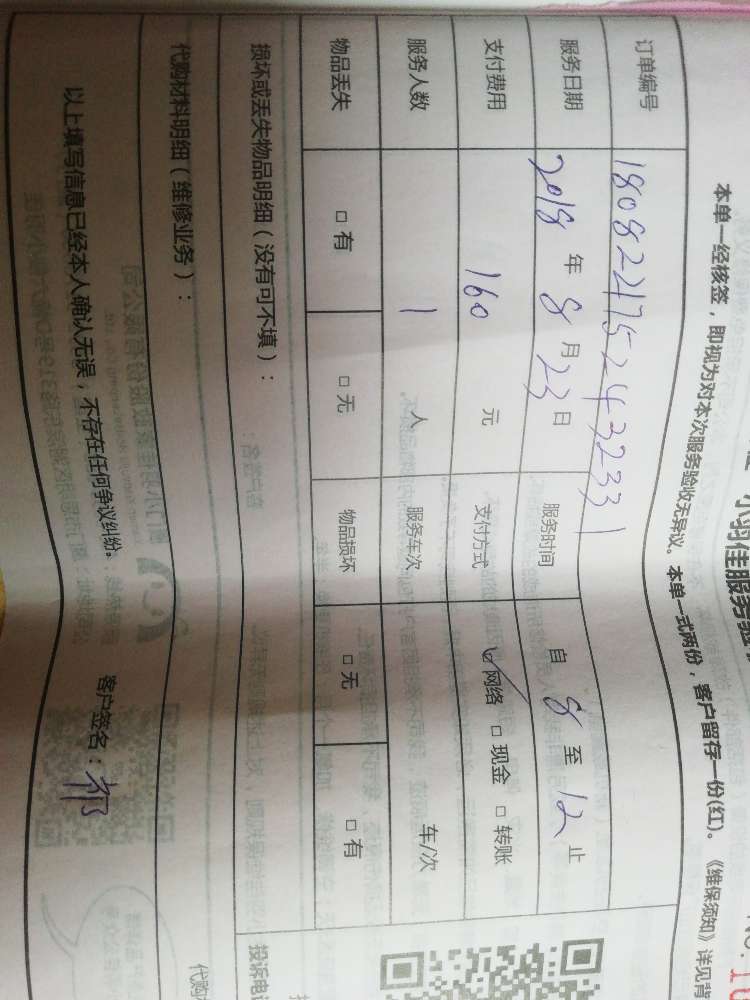 小羽佳服务验
No.1
本单一经核签，即视为对本次服务验收无异议。本单一式两份，客户留存一份(红)。《维保须知》详见背
订单编号 180822175243233 1
服务日期 2018 年 8 月 23 日 服务时间 自 8 至 12 止
支付费用 160 元 支付方式 ☑网络 □现金 □转账
服务人数 1 人 服务车次 车/次
物品丢失 □有 □无 物品损坏 □无 □有
损坏或丢失物品明细（没有可不填）：
投诉电
代购材料明细（维修业务）：
代购
以上填写信息已经本人确认无误，不存在任何争议纠纷。 客户签名：祁